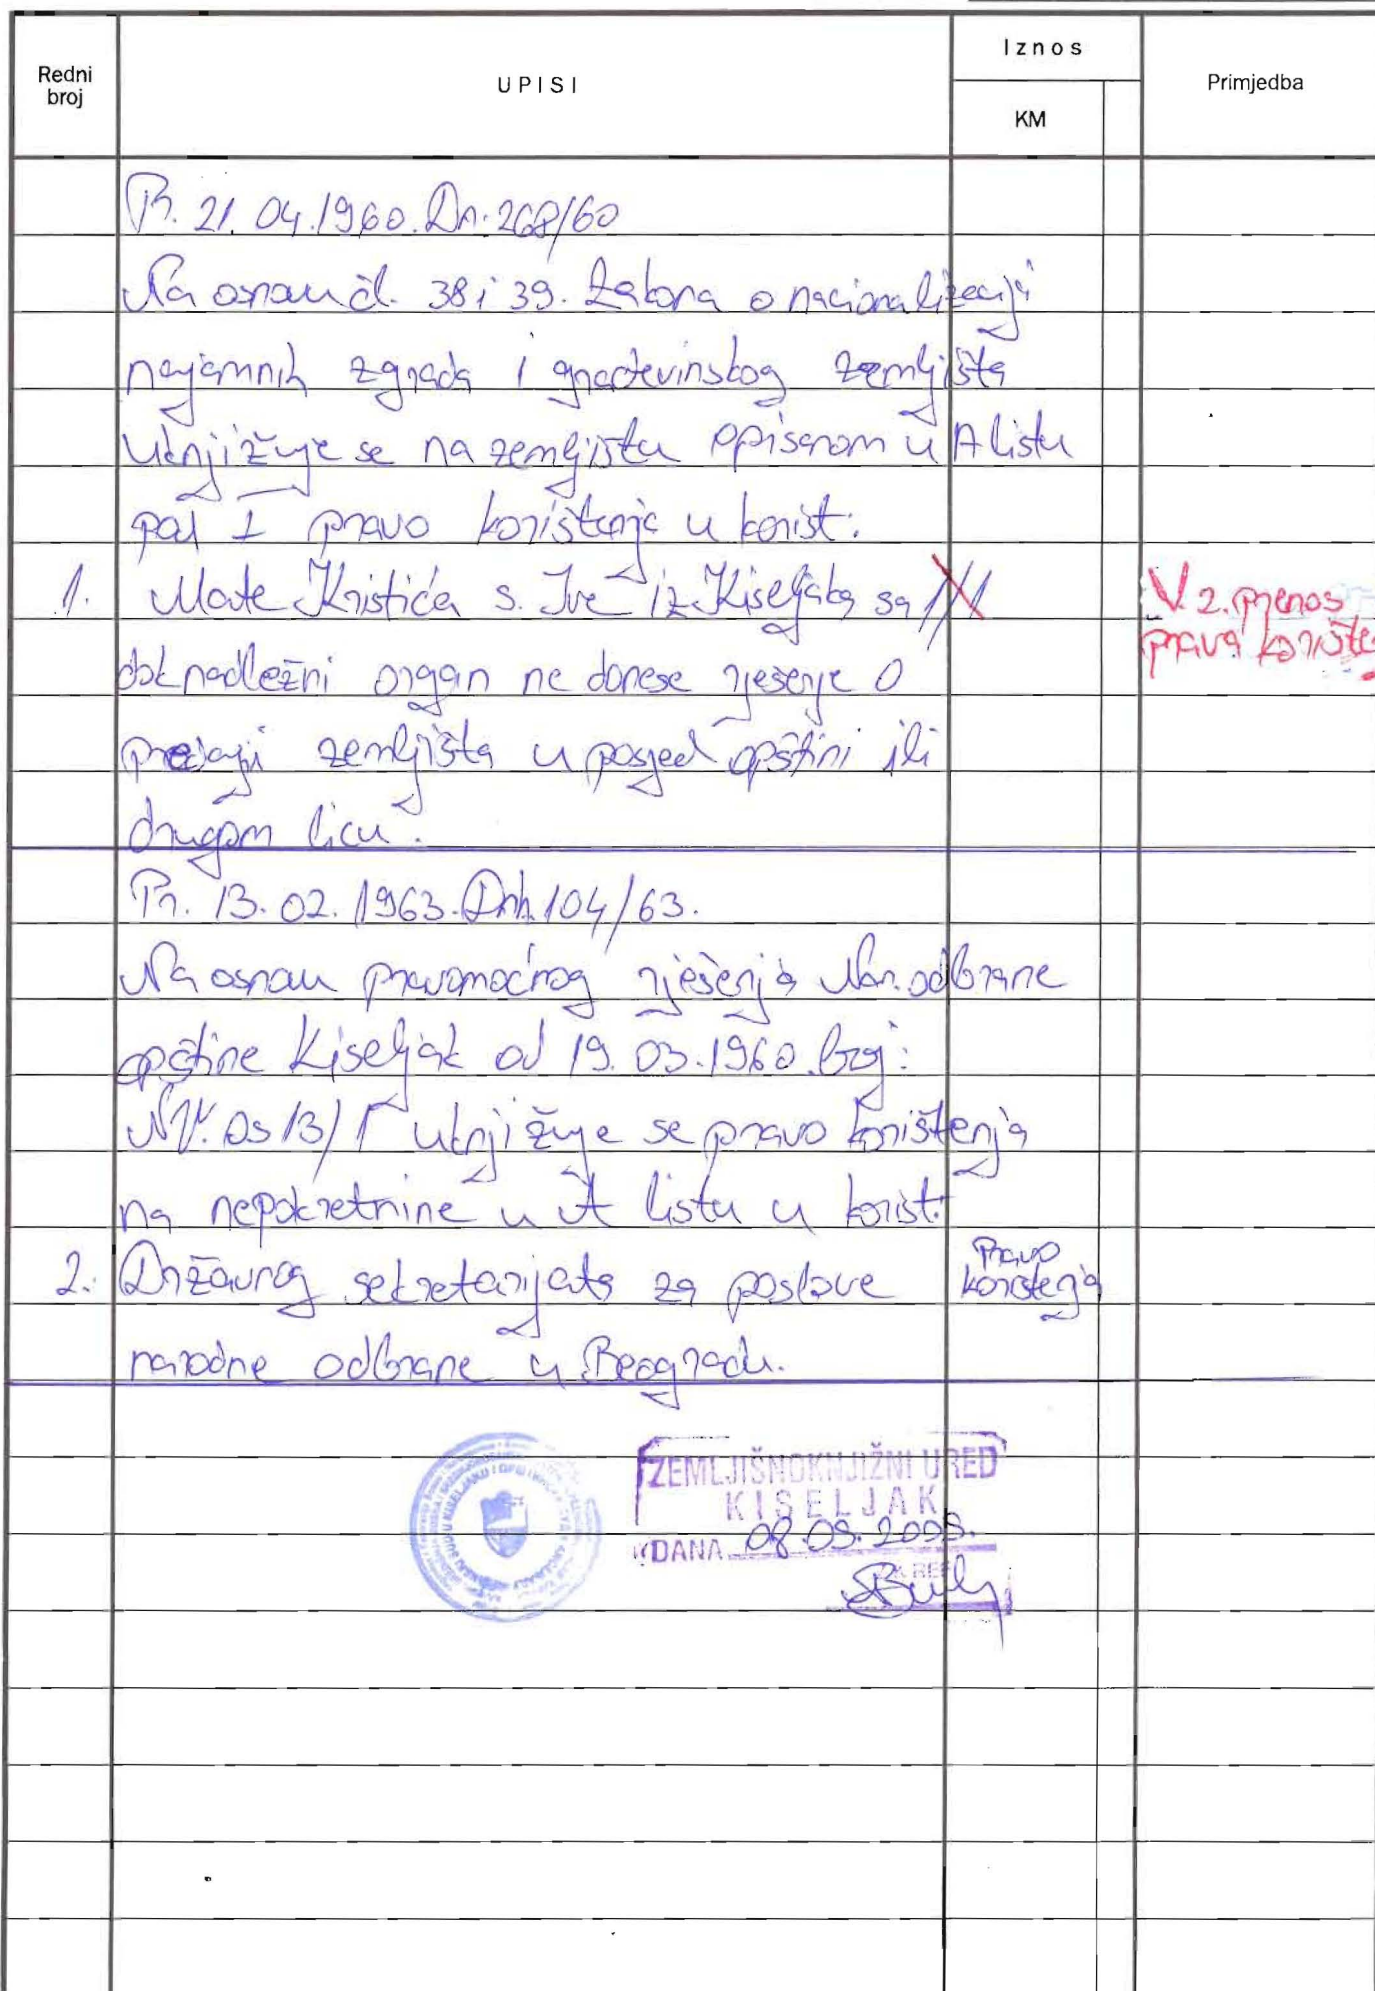 Redni
broj
UPISI
Iznos
KM
Primjedba
Pr. 21.04.1960. Dn. 268/60
Na osnovu čl. 38 i 39. Zakona o nacionalizaciji
najamnih zgrada i građevinskog zemljišta
uknjižuje se na zemljištu opisanom u A listu
pod I pravo korištenja u korist:
1. Mate Kristića s. Ive iz Kiseljaka sa 1/1
V. 2. prenos
prava korište
dok nadležni organ ne donese rješenje o
predaji zemljišta u posjed opštini ili
drugom licu.
Pr. 13.02.1963. Dnh. 104/63.
Na osnovu pravomoćnog rješenja Nar. odbrane
opštine Kiseljak od 19.03.1960. broj:
uknjižuje se pravo korištenja
na nepokretnine u A listu u korist:
2. Državnog sekretarijata za poslove
narodne odbrane u Beogradu.
Pravo
korištenja
ZEMLJIŠNOKNJIŽNI URED
KISELJAK
DANA